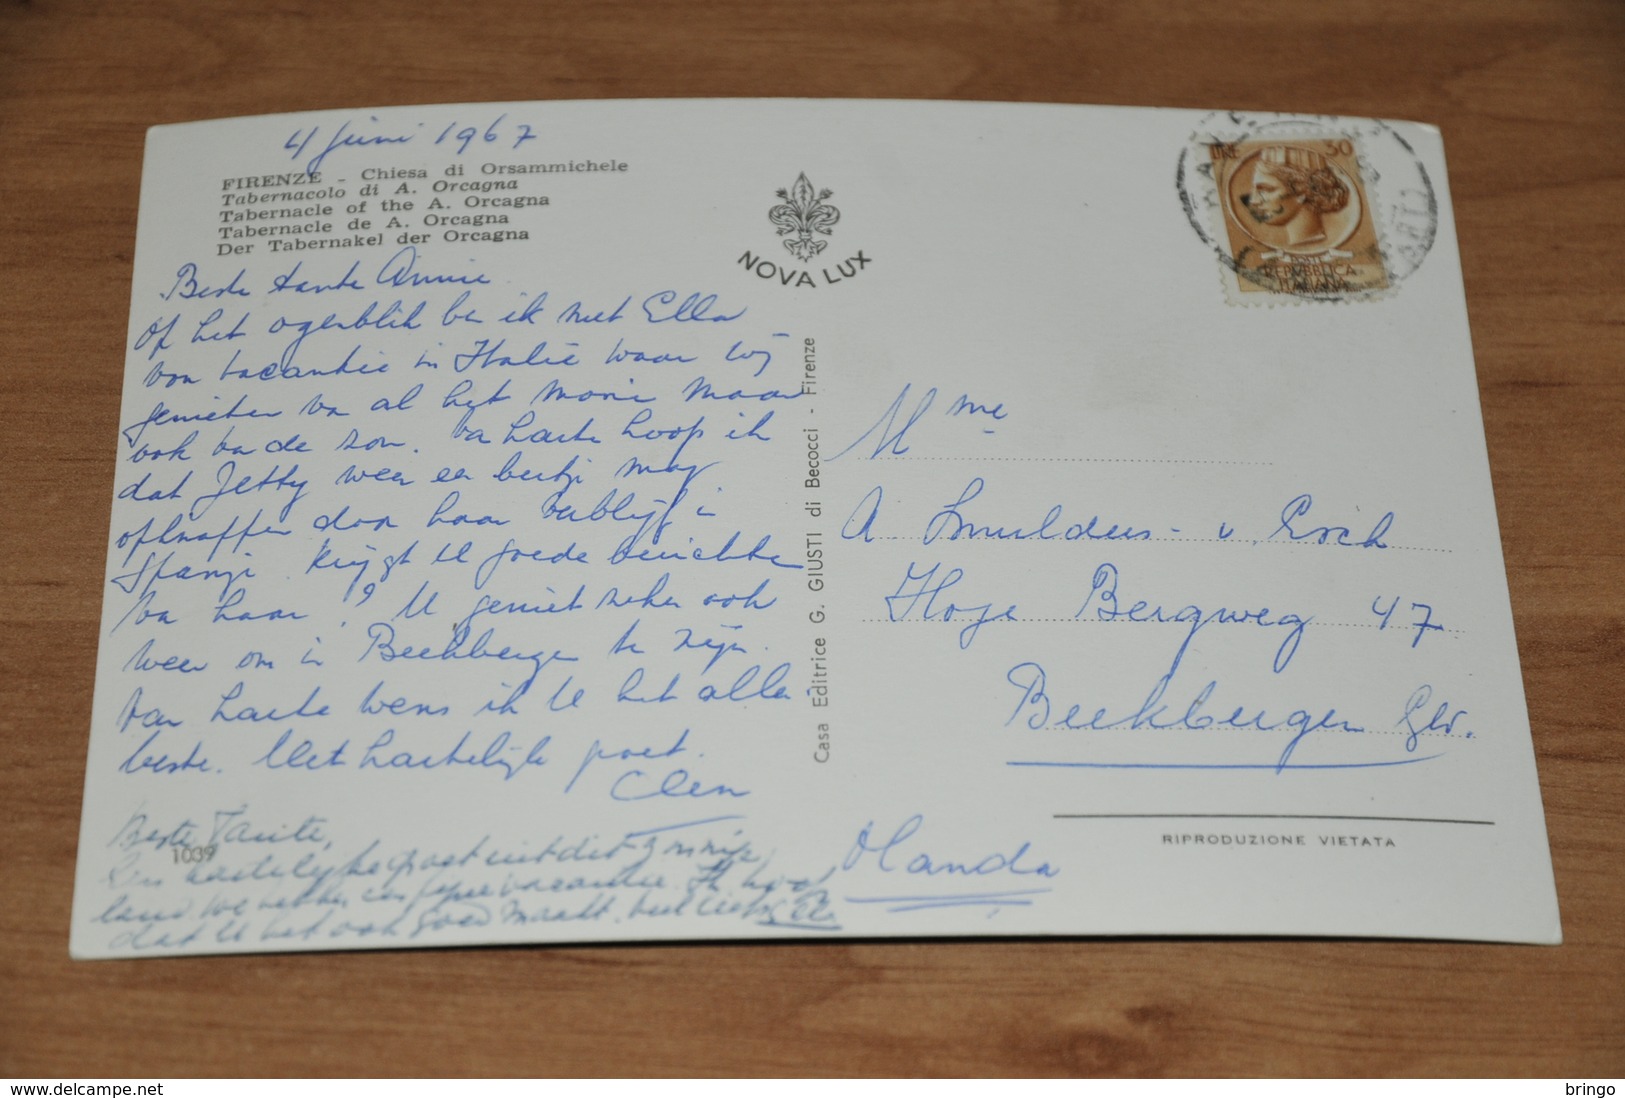 4 Juni 1967
FIRENZE - Chiesa di Orsammichele
Tabernacolo di A. Orcagna
Tabernacle of the A. Orcagna
Tabernacle de A. Orcagna
Der Tabernakel der Orcagna
Beste tante Annie
Op het ogenblik ben ik met Ella
van vacantie in Italië waar wij
genieten van al het moois maar
ook van de zon. Van harte hoop ik
dat Jetty weer een beetje mag
opknappen door haar verblijf in
Spanje. Krijgt U goede berichten
van haar? U geniet zeker ook
weer om in Beekbergen te zijn.
Van harte wens ik U het aller
beste. Met hartelijke groet.
Clen
Beste Tante,
Een hartelijke groet uit dit zonnige
land. We hebben een fijne vacantie. Ik hoop
dat U het ook goed maakt. veel liefs
1039
NOVA LUX
Casa Editrice G. GIUSTI di Becocci - Firenze
LIRE 30
POSTE
REPVBBLICA
ITALIANA
Mme
A Smulders - v. Esch
Hoge Bergweg 47
Beekbergen Gld.
Olanda
RIPRODUZIONE VIETATA
www.delcampe.net
bringo